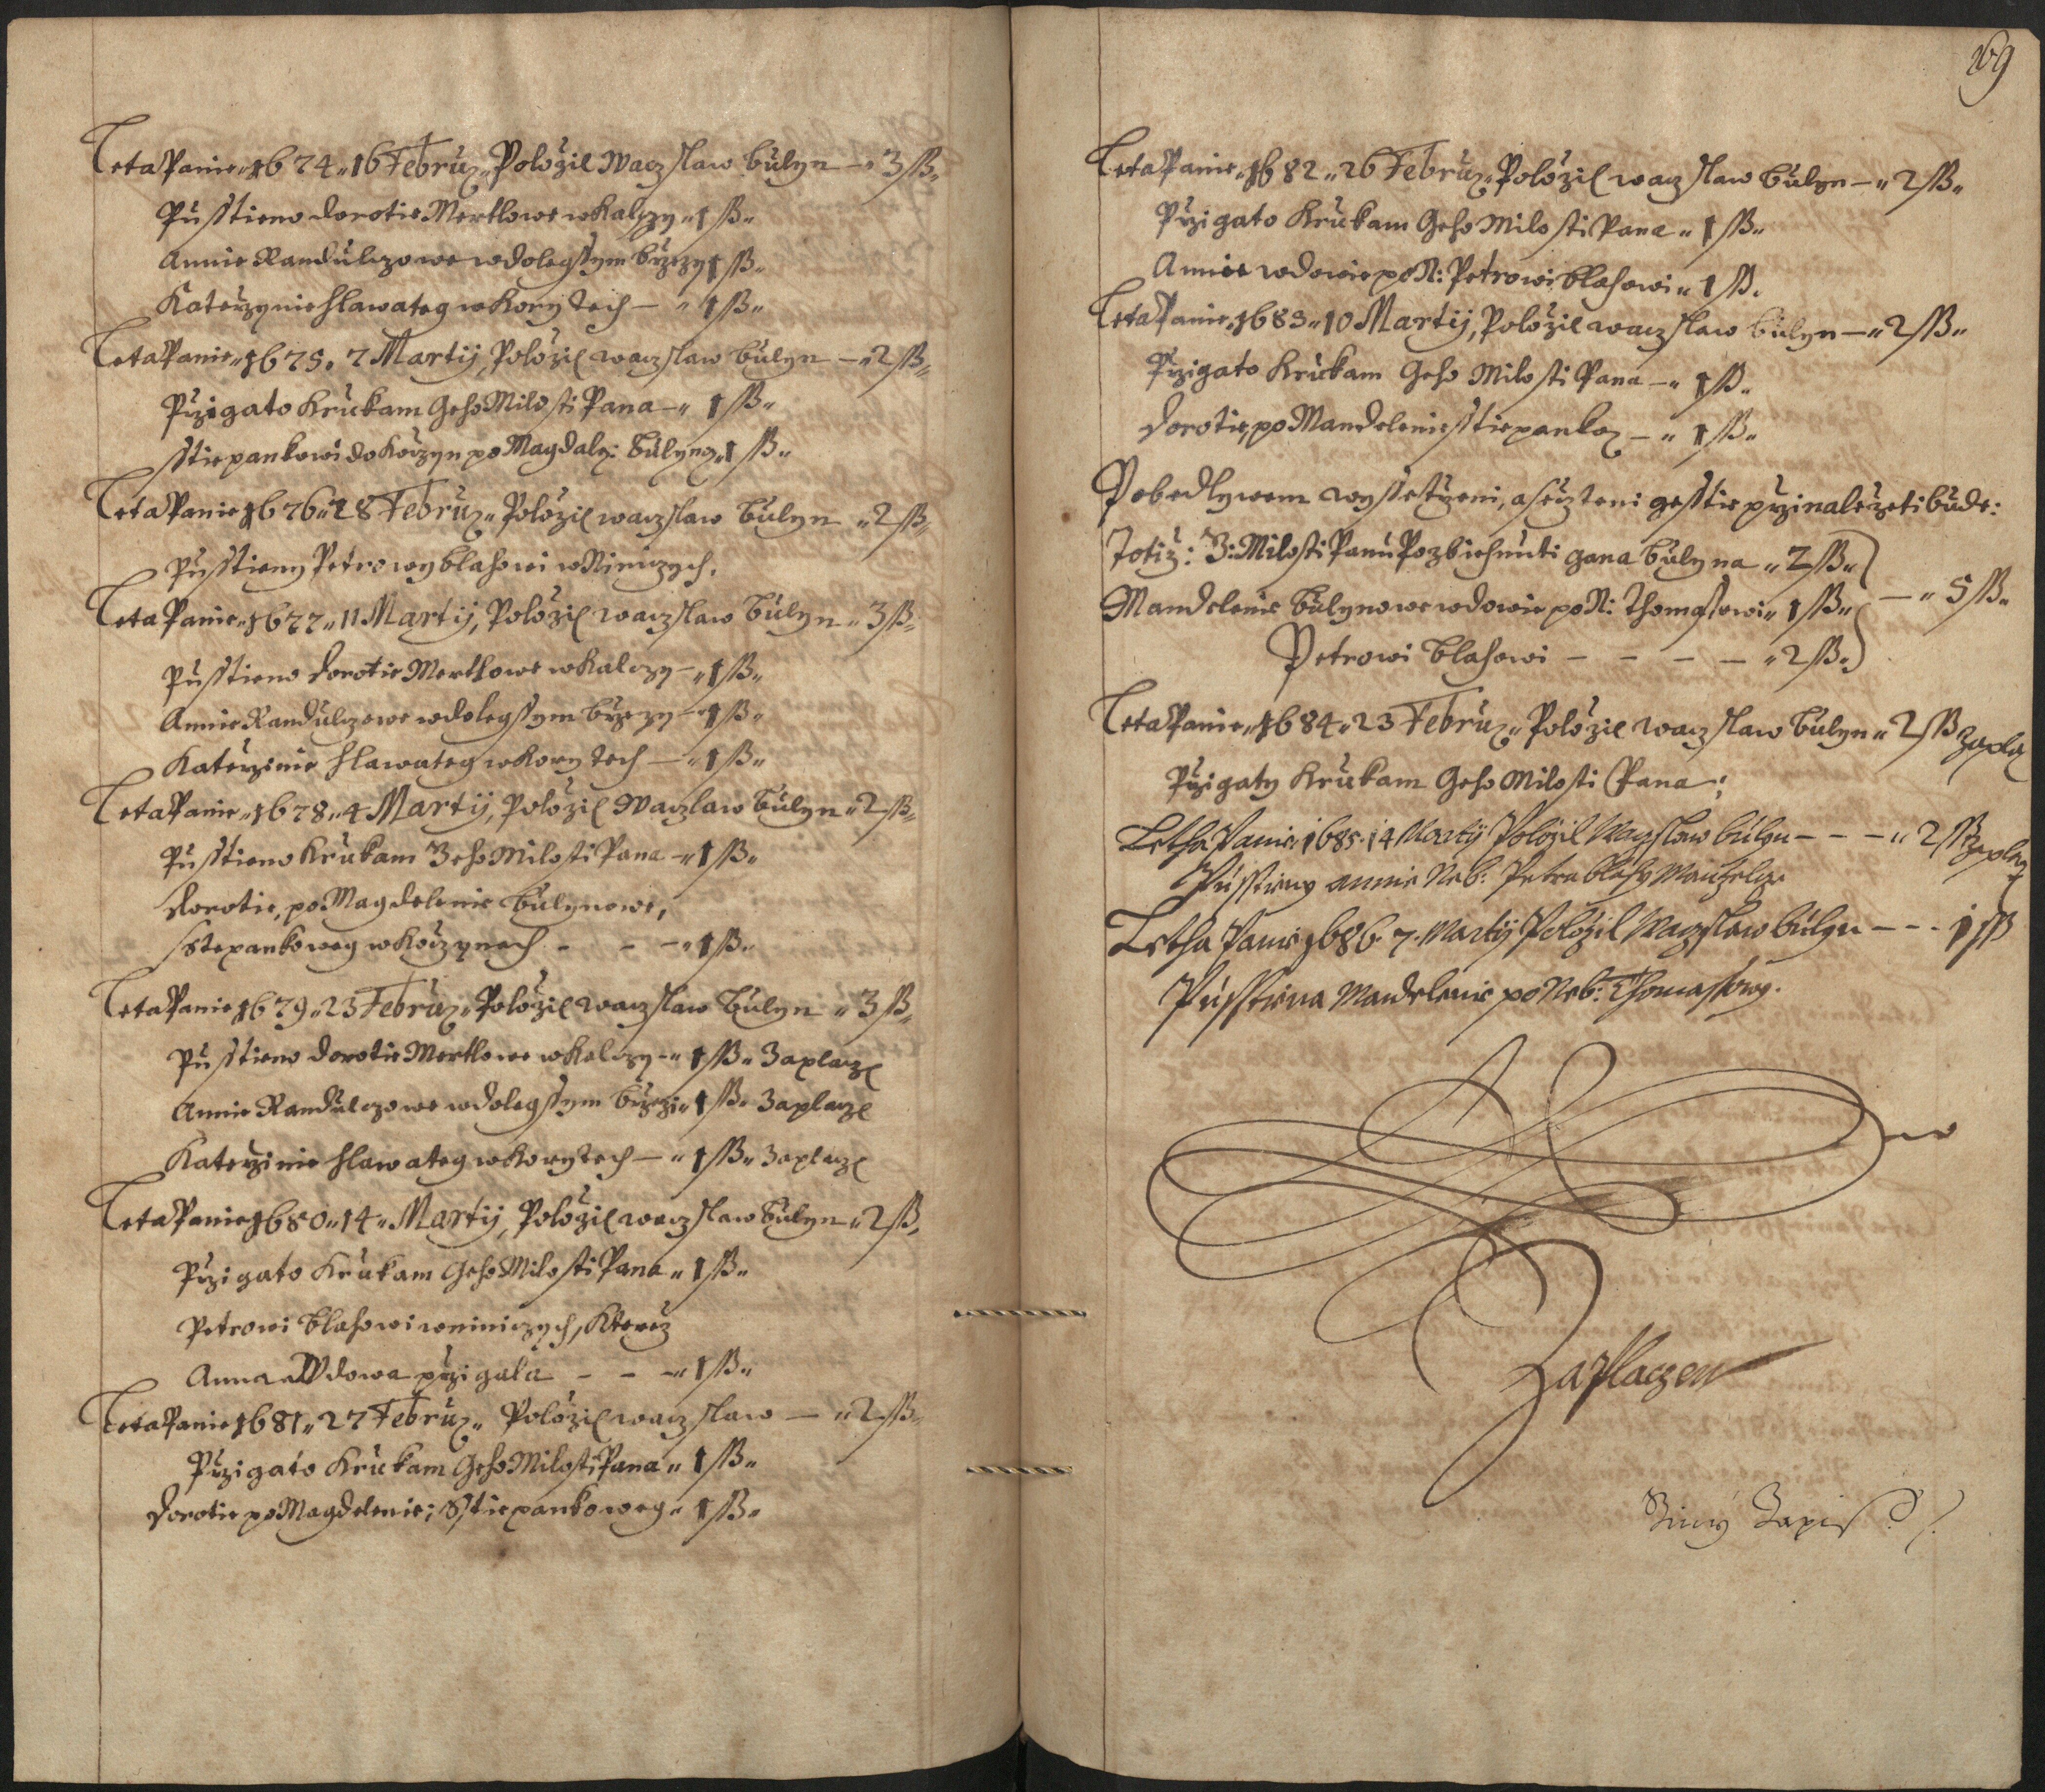 Leta Panie 1674 16 Februz Položil Waczslaw Bulyn — 3 ß
Pusstieno dorotie Mertlowe w Kalczy 1 ß
Annie Randulczowe w dolegssym Brzezy 1 ß
Katerzynie Hlawateg w Korytech — 1 ß
Leta Panie 1675. 7 Martij, Položil waczslaw bulyn — 2 ß
Przigato k rukam Geho Milosti Pana — 1 ß
sstiepankowi do Korzyn po Magdaly: Bulyno 1 ß
Leta Panie 1676 28 Februz Položil waczslaw Bulyn 2 ß
Pusstieny Petrowy blahowi w Niniczych.
Leta Panie 1677 11 Martij, Položil waczslaw Bulyn 3 ß
Pusstieno dorotie Mertlowe w Kalczy — 1 ß
Annie Randulczowe w dolegssym brzezy — 1 ß
Katerzinie hlawateg w Korytech — 1 ß
Leta Panie 1678 4 Martij, Položil Waczlaw Bulyn 2 ß
Pusstieno k rukam Jeho Milosti Pana — 1 ß
dorotie, po Magdelenie Bulynowe,
Sstepankoweg w Korzynech - - — 1 ß
Leta Panie 1679 23 Februz Položil waczslaw Bulyn 3 ß
Pusstieno dorotie Mertlowe w Kalczy — 1 ß Zaplacze
Annie Randulczowe w dolegssym brzezi 1 ß Zaplacze
Katerzinie hlawateg w Korytech — 1 ß Zaplacze
Leta Panie 1680 14 Martij, Položil waczslaw Bulyn 2 ß
Przigato k rukam Geho Milosti Pana 1 ß
Petrowi Blahowi w niniczych, kterež
Anna Wdowa przigala - - — 1 ß
Leta Panie 1681 27 Februz Položil waczslaw — 2 ß
Przigato k rukam Geho Milosti Pana 1 ß
dorotie po Magdelenie; Sstiepankoweg 1 ß
169
Leta Panie 1682 26 Februz Položil waczslaw Bulyn — 2 ß
Przigato k rukam Geho Milosti Pana 1 ß
Annie wdowie po N: Petrowi blahowi 1 ß
Leta Panie 1683 10 Martij, Položil waczslaw bulyn — 2 ß
Przigato k rukam Geho Milosti Pana — 1 ß
dorotie, po Mandelenie sstiepanko — 1 ß
Po bedlywem wyssetrzeni, a seczteni gesstie przinaležeti bude:
Totiž: J: Milosti Panu Po zbiehnuti Jana Bulyna 2 ß
Mandelenie Bulynowe wdowie po N: Thomassowi 1 ß — 5 ß
Petrowi Blahowi - - - - 2 ß
Leta Panie 1684 23 Februz Položil waczslaw Bulyn 2 ß zapla
Przigaty k rukam Geho Milosti Pana;
Letha Panie 1685. 14 Martij Položil Waczslaw bulyn - - - 2 ß zapla
Pusstieny annie Neb: Petra blahy Manželcze
Letha Panie 1686. 7. Martij Položil Waczslaw bulyn - - - 1 ß
Pusstiena Mandelenie po Neb: Thomassowy.
Zaplaczen
Giny Zapis